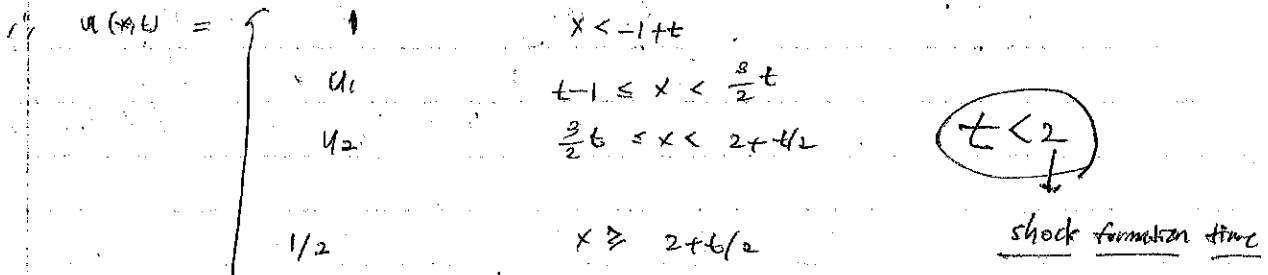 u(x,t) = { 1 x < -1+t
u₁ t-1 ≤ x < 3/2 t
u₂ 3/2 t ≤ x < 2+t/2 t<2
1/2 x ≥ 2+t/2 shock formation time